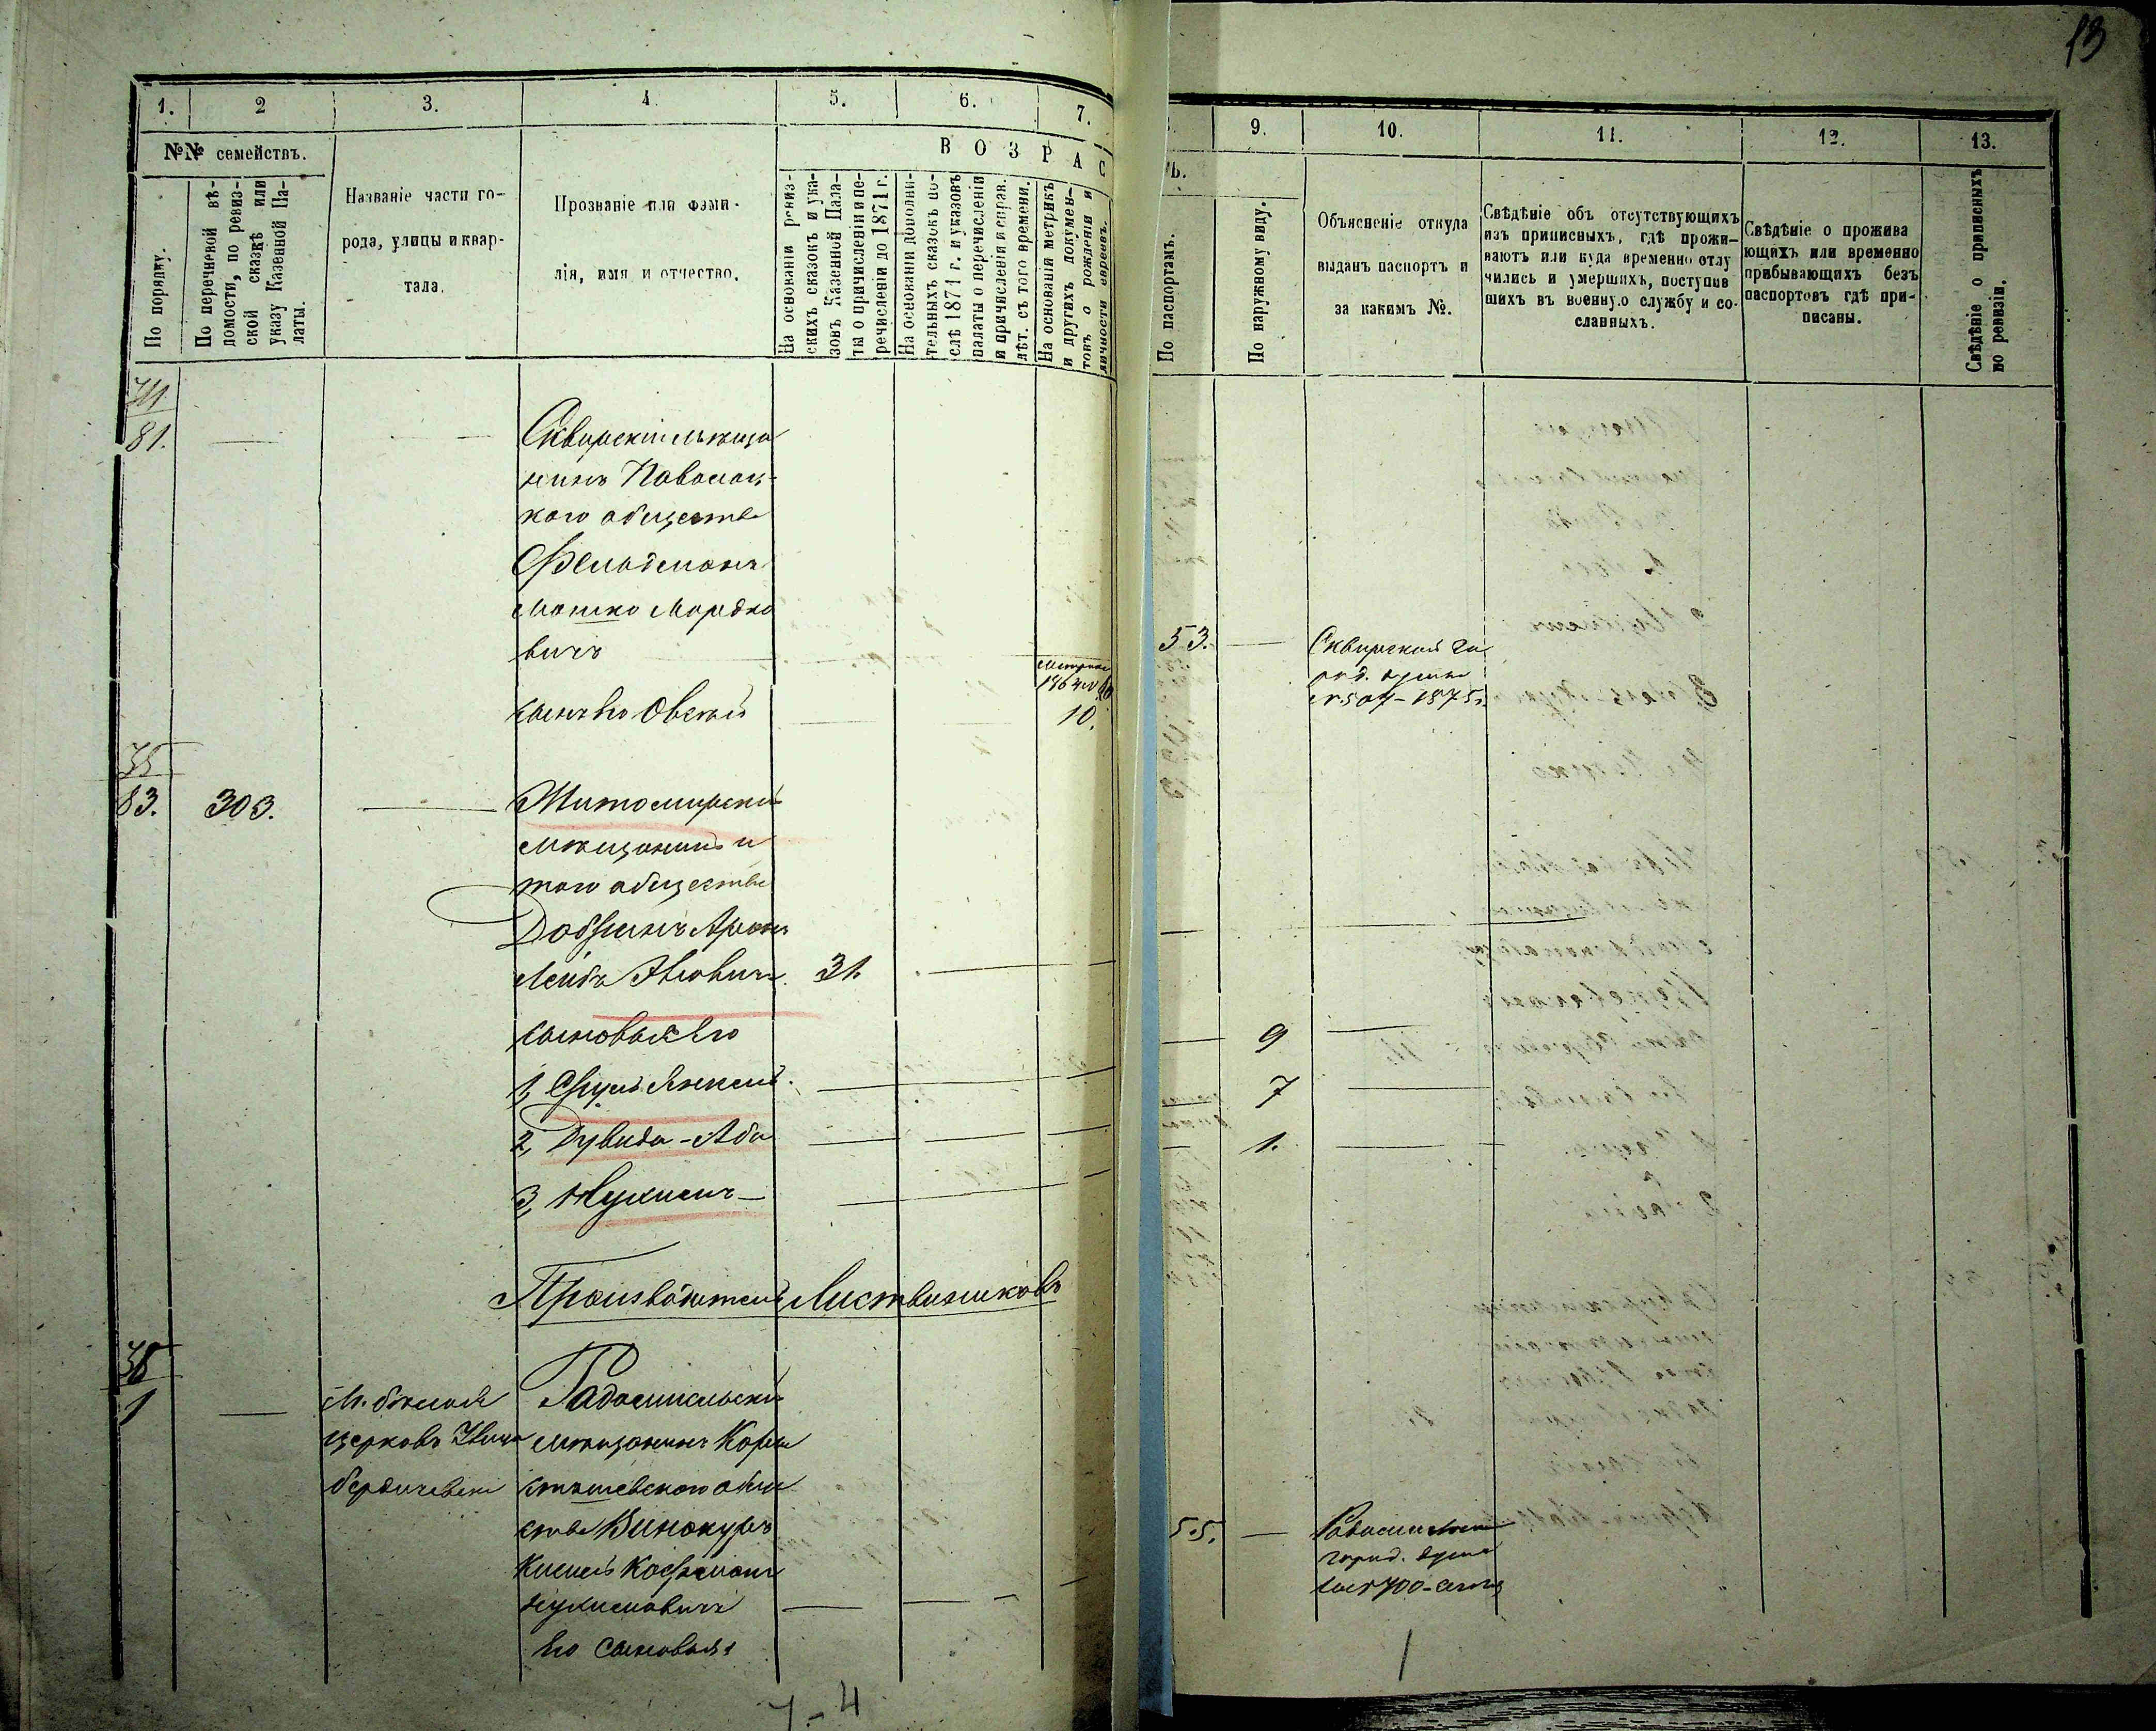 13
1. 2 3. 4. 5. 6. 7.
№№ семействъ.
В О З Р А С
По порядку.
По перечневой вѣ-
домости, по ревиз-
ской сказкѣ или
указу Казенной Па-
латы.
Названіе части го-
рода, улицы и квар-
тала.
Прозваніе или фами-
лія, имя и отчество.
На основаніи ревиз-
скихъ сказокъ и ука-
зовъ Казенной Пала-
ты о причисленіи и пе-
речисленіи до 1871 г.
На основаніи дополни-
тельныхъ сказокъ по-
слѣ 1871 г. и указовъ
палаты о перечисленіи
и причисленіи и справ.
лѣт. съ того времени.
На основаніи метрикъ
и другихъ докумен-
товъ о рожденіи и
личности евреевъ.
81.
Сквирскій мѣща
нинъ Паволоц-
кого общества
Фельдманъ
Мошко Мордко
вичъ
сынъ Его Овсѣй
10.
83. 303.
Житомирскій
мѣщанинъ и
того общества
Добринъ Аронъ
Лейбъ Явовичъ 31.
сыновья Его
1, Сруль Янкель
2, Дувидъ-Аба
3, Нухимъ
Производитель Листвиниковъ
38
1
М. бѣлая
церковь Улица
бердичевска
Радомисльскій
мѣщанинъ Коры
стышевского обще
ства Винокуръ
Кисель Кофманъ
Нухимовичъ
Его сыновья:
7-4
9. 10. 11. 12. 13.
Ъ.
По паспортамъ.
По наружному виду.
Объясненіе откуда
выданъ паспортъ и
за какимъ №.
Свѣдѣніе объ отсутствующихъ
изъ приписныхъ, гдѣ прожи-
ваютъ или куда временно отлу
чились и умершихъ, поступив
шихъ въ военную службу и со-
сланныхъ.
Свѣдѣніе о прожива
ющихъ или временно
прибывающихъ безъ
паспортовъ гдѣ при-
писаны.
Свѣдѣніе о приписныхъ
по ревизіи.
53.
Сквирской го
род. думы
№507-1875г.
9
7
1.
55.
Радомисльск
город. дума
1